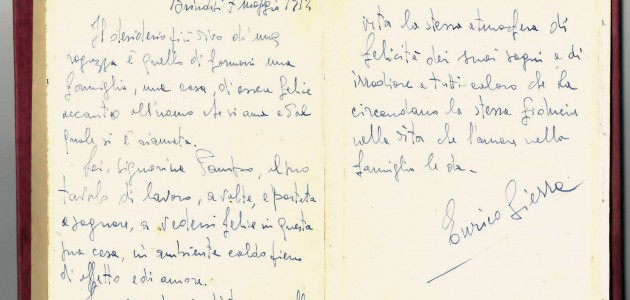 Brindisi 7 maggio 1954
Il desiderio più vivo di una
ragazza è quello di formarsi una
famiglia, una casa, di essere felice
accanto all'uomo che si ama e dal
quale si è riamata.
Lei, signorina, al suo
tavolo di lavoro, a volte, è portata
a sognare, a vedersi felice in questa
sua casa, in ambiente caldo pieno
di affetto e di amore.
vita la stessa atmosfera di
felicità dei suoi sogni e di
irradiare a tutti coloro che la
circondano la stessa
nella vita che l'amore nella
famiglia le da.
Enrico